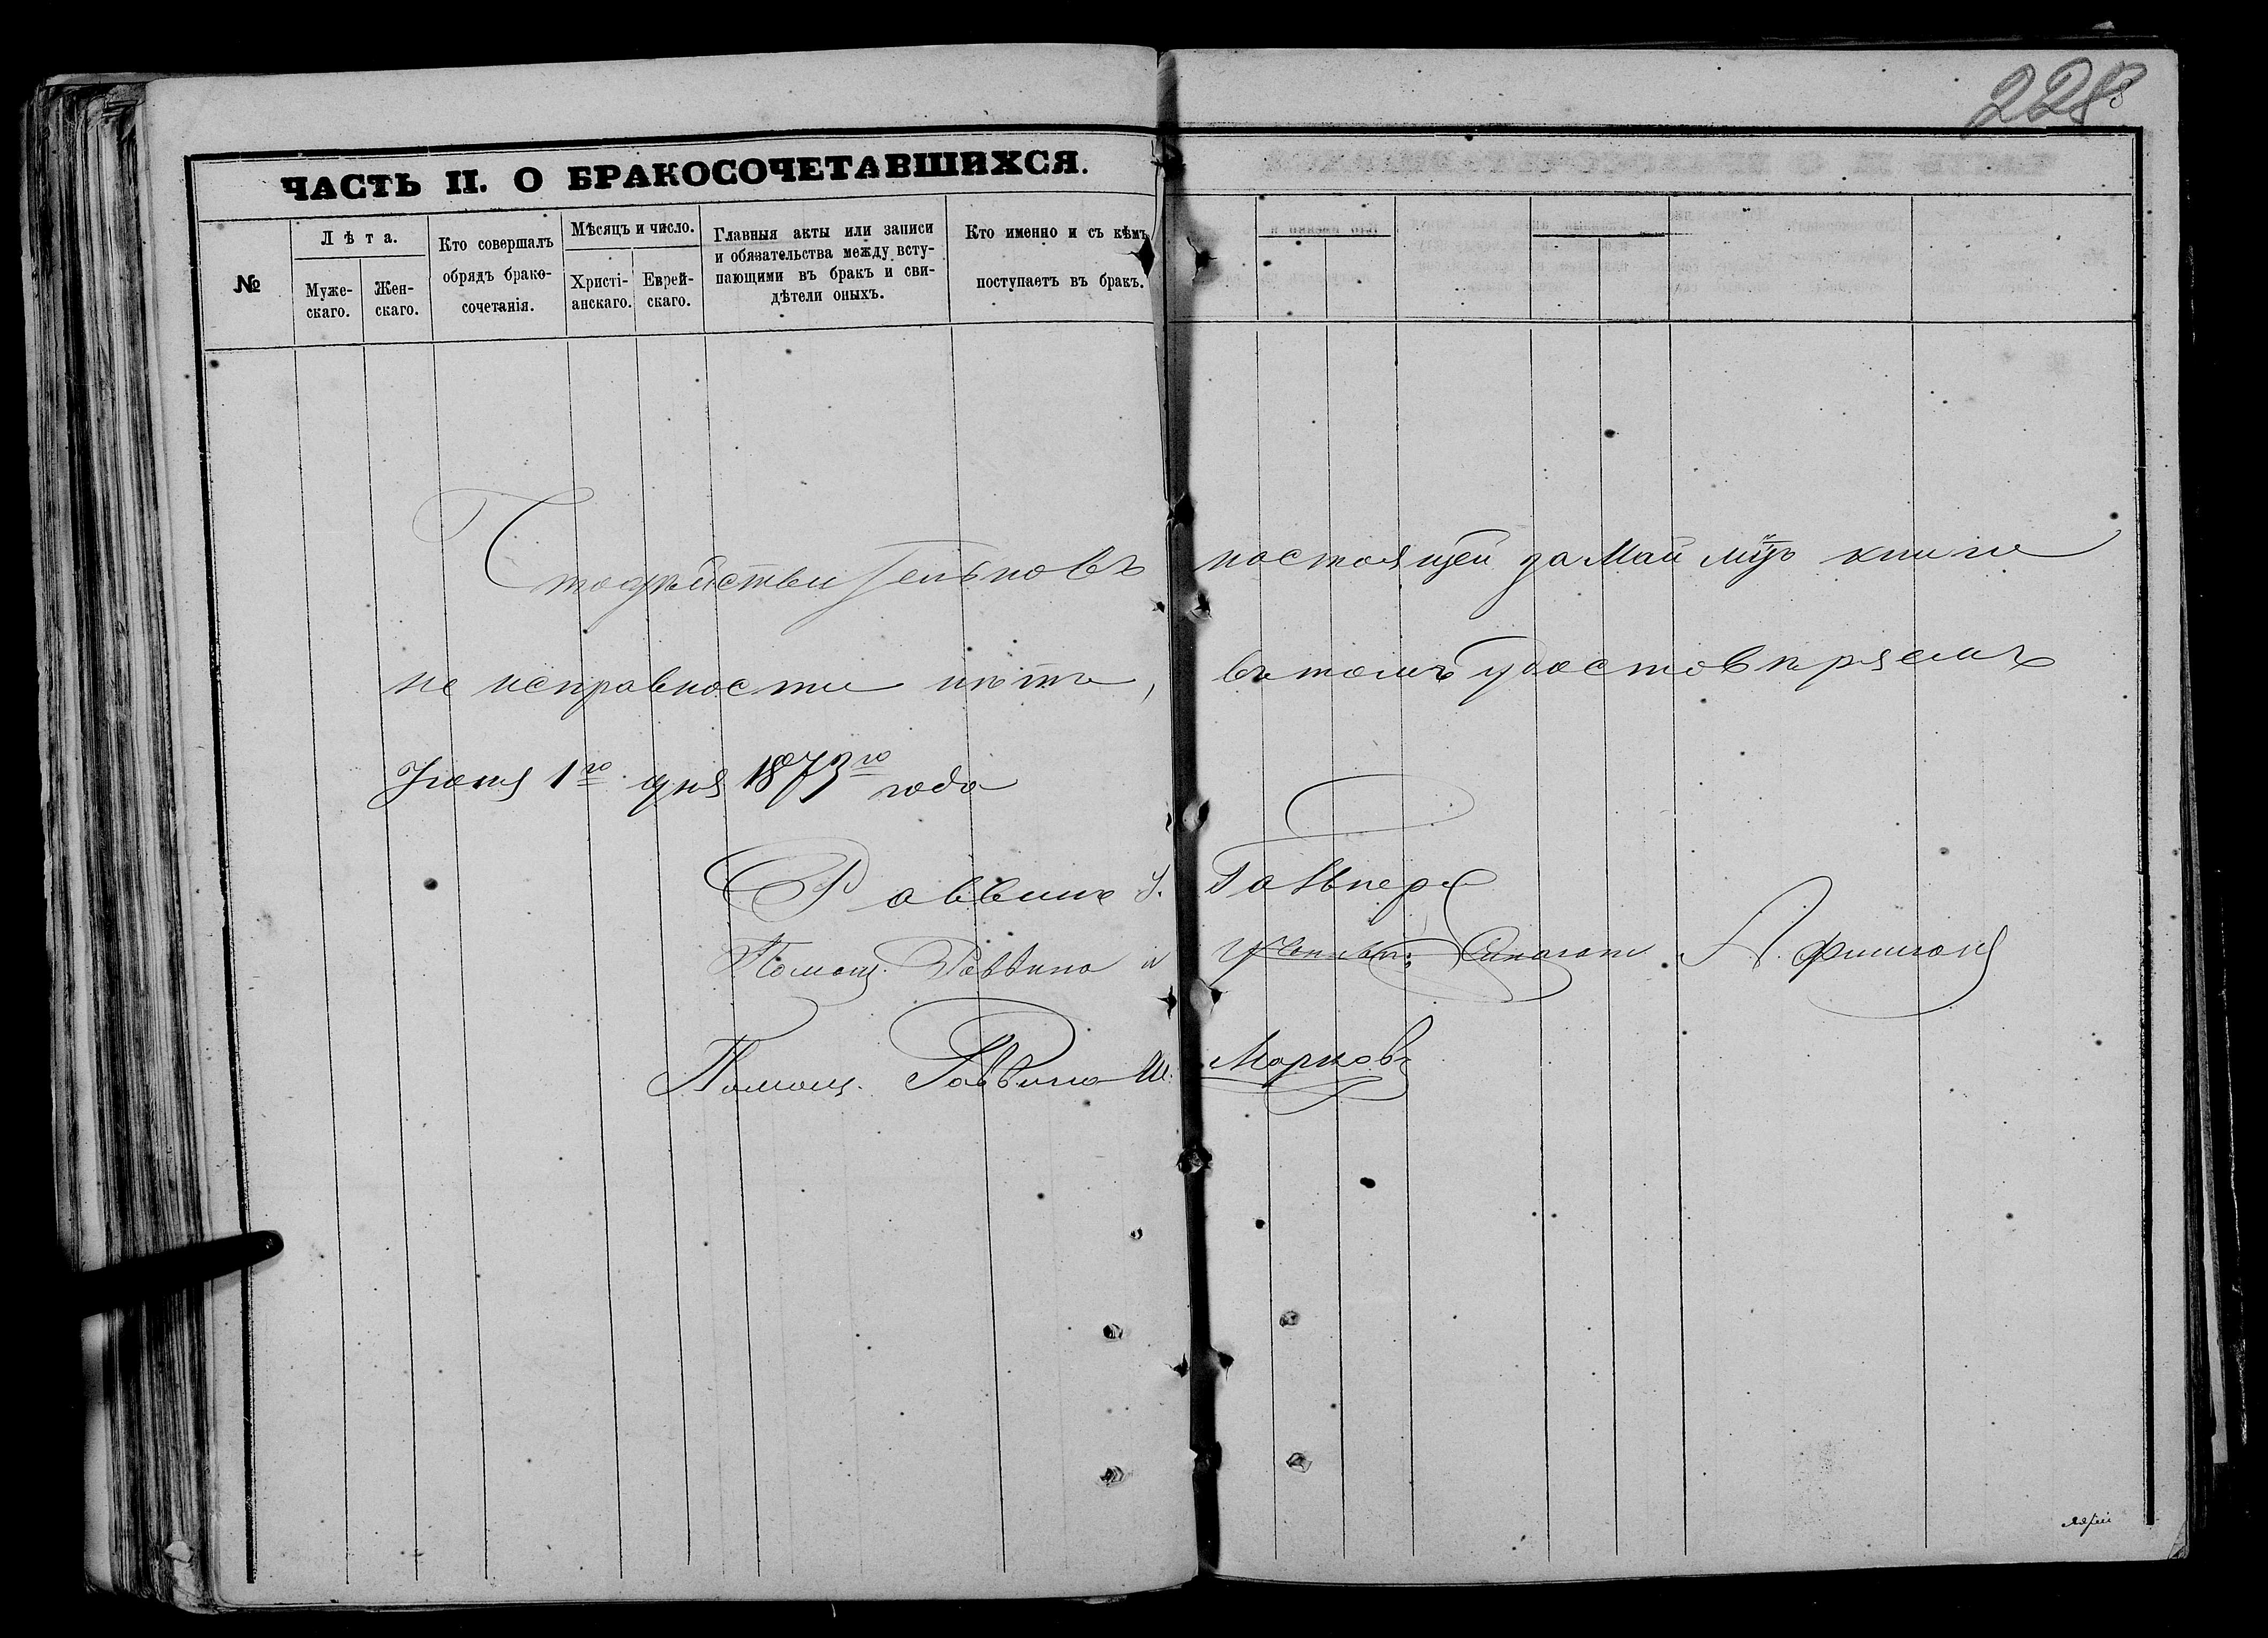 228
ЧАСТЬ II. О БРАКОСОЧЕТАВШИХСЯ.
№
Лѣта.
Муже-
скаго.
Жен-
скаго.
Кто совершалъ
обрядъ брако-
сочетанія.
Мѣсяцъ и число.
Христі-
анскаго.
Еврей-
скаго.
Главныя акты или записи
и обязательства между всту-
пающими въ бракъ и сви-
дѣтели оныхъ.
Кто именно и съ кѣмъ
поступаетъ въ бракъ.
Что дѣйствительно въ настоящей за Май мцъ книге
не исправности нѣтъ, въ томъ удостовѣряемъ
Іюня 1го дня 1873го года
Раввинъ
Помощ. Раввина и А. Фишманъ
Помощ. Раввина Ш. Марковъ